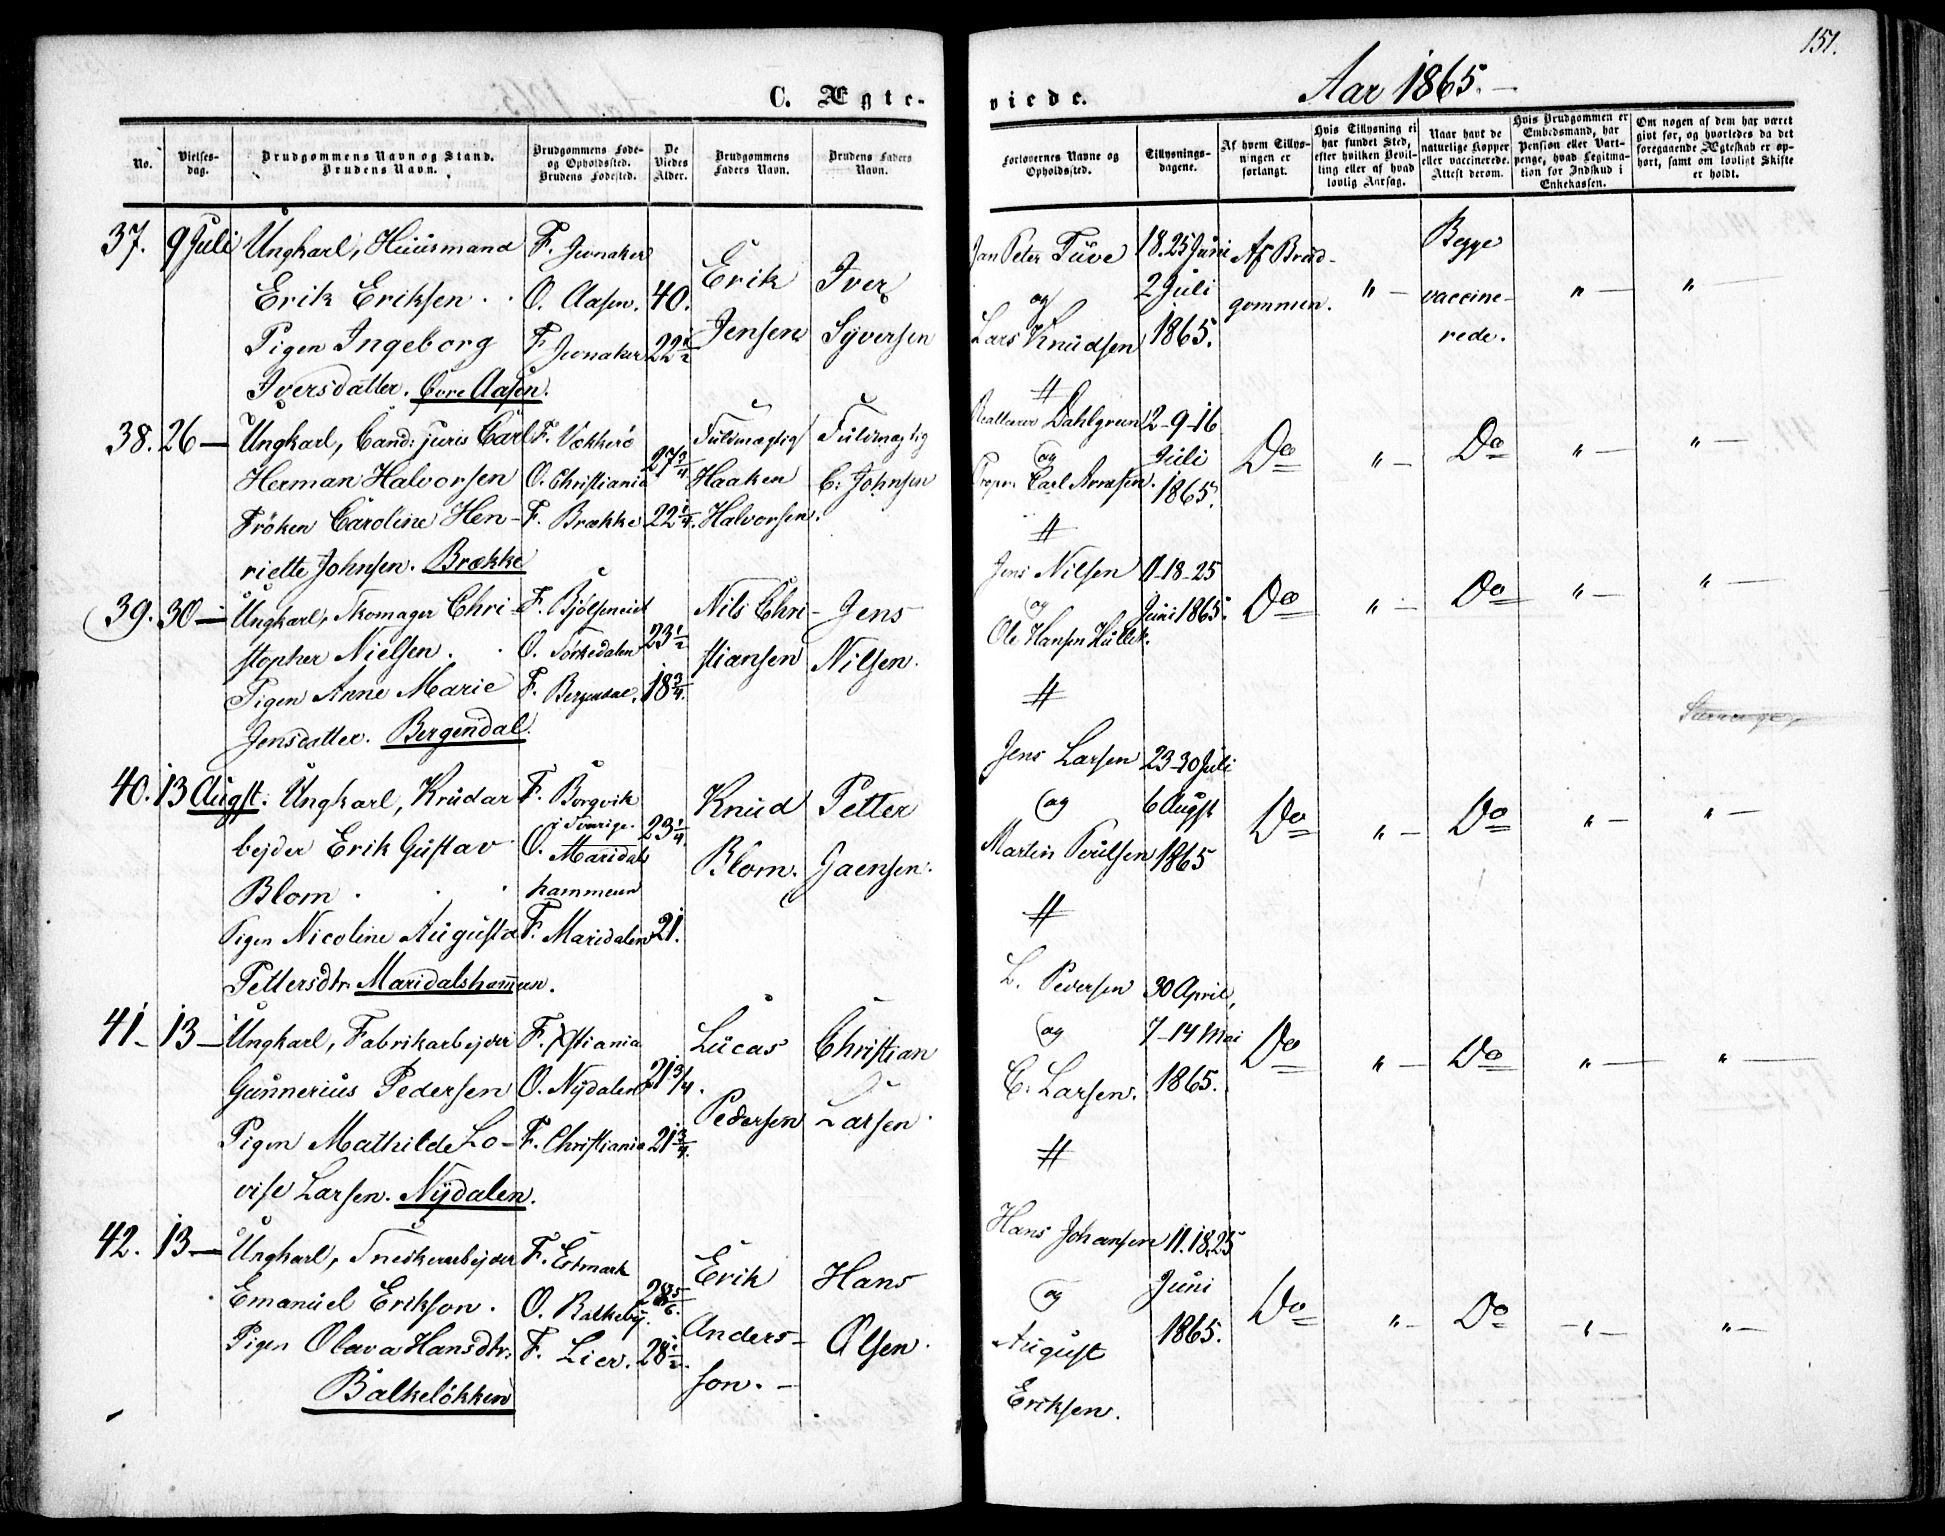 151.
C. Ægte-
viede.
Aar 1865.
No.
Vielses-
dag.
Brudgommens Navn og Stand.
Brudens Navn.
Brudgommens Føde-
og Opholdssted.
Brudens Fødested.
De
Viedes
Alder.
Brudgommens
Faders Navn.
Brudens Faders
Navn.
Forlovernes Navne og
Opholdssted.
Tillysnings-
dagene.
Af hvem Tillys-
ningen er
forlangt.
Hvis Tillysning ei
har fundet Sted,
efter hvilken Bevil-
ling eller af hvad
lovlig Aarsag.
Naar havt de
naturlige Kopper
eller vaccinerede.
Attest derom.
Hvis Brudgommen er
Embedsmand, har
Pension eller Vart-
penge, hvad Legitima-
tion for Indskud i
Enkekassen.
Om nogen af dem har været
givt før, og hvorledes da det
foregaaende Ægteskab er op-
hørt, samt om lovligt Skifte
er holdt.
37. 9 Juli Ungkarl, Huusmand F. Jevnaker
Erik Eriksen O. Aasen. 40.
Pigen Ingeborg F. Jevnaker 22 1/2
Iversdatter. Øvre Aasen.
Erik
Jensen
Iver
Syversen
Jan Peter Tuve
og
Lars Knudsen
18. 25 Juni
2 Juli
1865.
Af Brud-
gommen.
"
Begge
vaccine-
rede.
" "
38. 26 Ungkarl, Cand: juris Carl F. Vækkerö
Herman Halvorsen O. Christiania 27 3/4
Fröken Caroline Hen- F. Brække 22 1/4
riette Johnsen. Brække
Fuldmægtig
Haaken
Halvorsen.
Fuldmægtig
C. Johnsen
Dahlgreen
og
Propr. Carl Arnesen.
2-9-16
Juli
1865.
Do " Do " "
39. 30 Ungkarl, Skomager Chri- F. Bjölsen
stopher Nielsen. O. Sörkedalen 23 1/2
Pigen Anne Marie F. Bergendal. 18 3/4.
Jensdatter. Bergendal.
Nils Chri-
stiansen
Jens
Nilsen.
Jens Nilsen
og
Ole Hansen
11-18-25
Juni 1865.
Do " Do " "
40. 13 Augst. Ungkarl, Krudar F. Borgvik
i Sverige.
bejder Erik Gustav O. Maridals 23 1/4
Blom hammeren
Pigen Nicoline Augusta F. Maridalen 21.
Pettersdtr. Maridalshammeren.
Knud
Blom.
Petter
Jaensen.
Jens Larsen
og
Martin Poulsen
23-30 Juli
6 Augst
1865
Do " Do " "
41. 13 Ungkarl, Fabrikarbejder F. Xstiania
Gunnerius Pedersen O. Nydalen 21 3/4.
Pigen Mathilde Lo- F. Christiania 21 3/4.
vise Larsen. Nydalen.
Lucas
Pedersen
Christian
Larsen.
L. Pedersen
og
C. Larsen.
30 April,
7-14 Mai
1865.
Do " Do " "
42. 13 Ungkarl, Snedkerarbejder F. Edmark
Emanuel Erikson. O. Balkeby. 28 5/6.
Pigen Olava Hansdtr. F. Lier. 28 1/2.
Balkelökken
Erik
Anders-
son.
Hans
Olsen.
Hans Johansen
og
August
Eriksen.
11. 18. 25
Juni
1865.
Do " Do " "